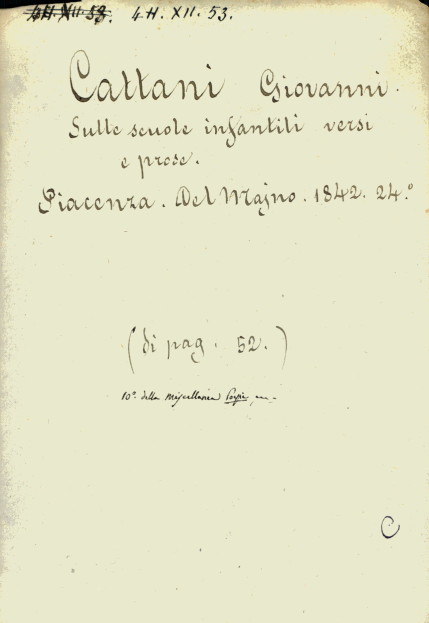 4 H. XII. 53. 4 H. XII. 53.
Cattani Giovanni.
Sulle scuole infantili versi
e prose.
Piacenza. Del Majno. 1842. 24.°
(di pag. 52.)
10°. della Miscellanea
C